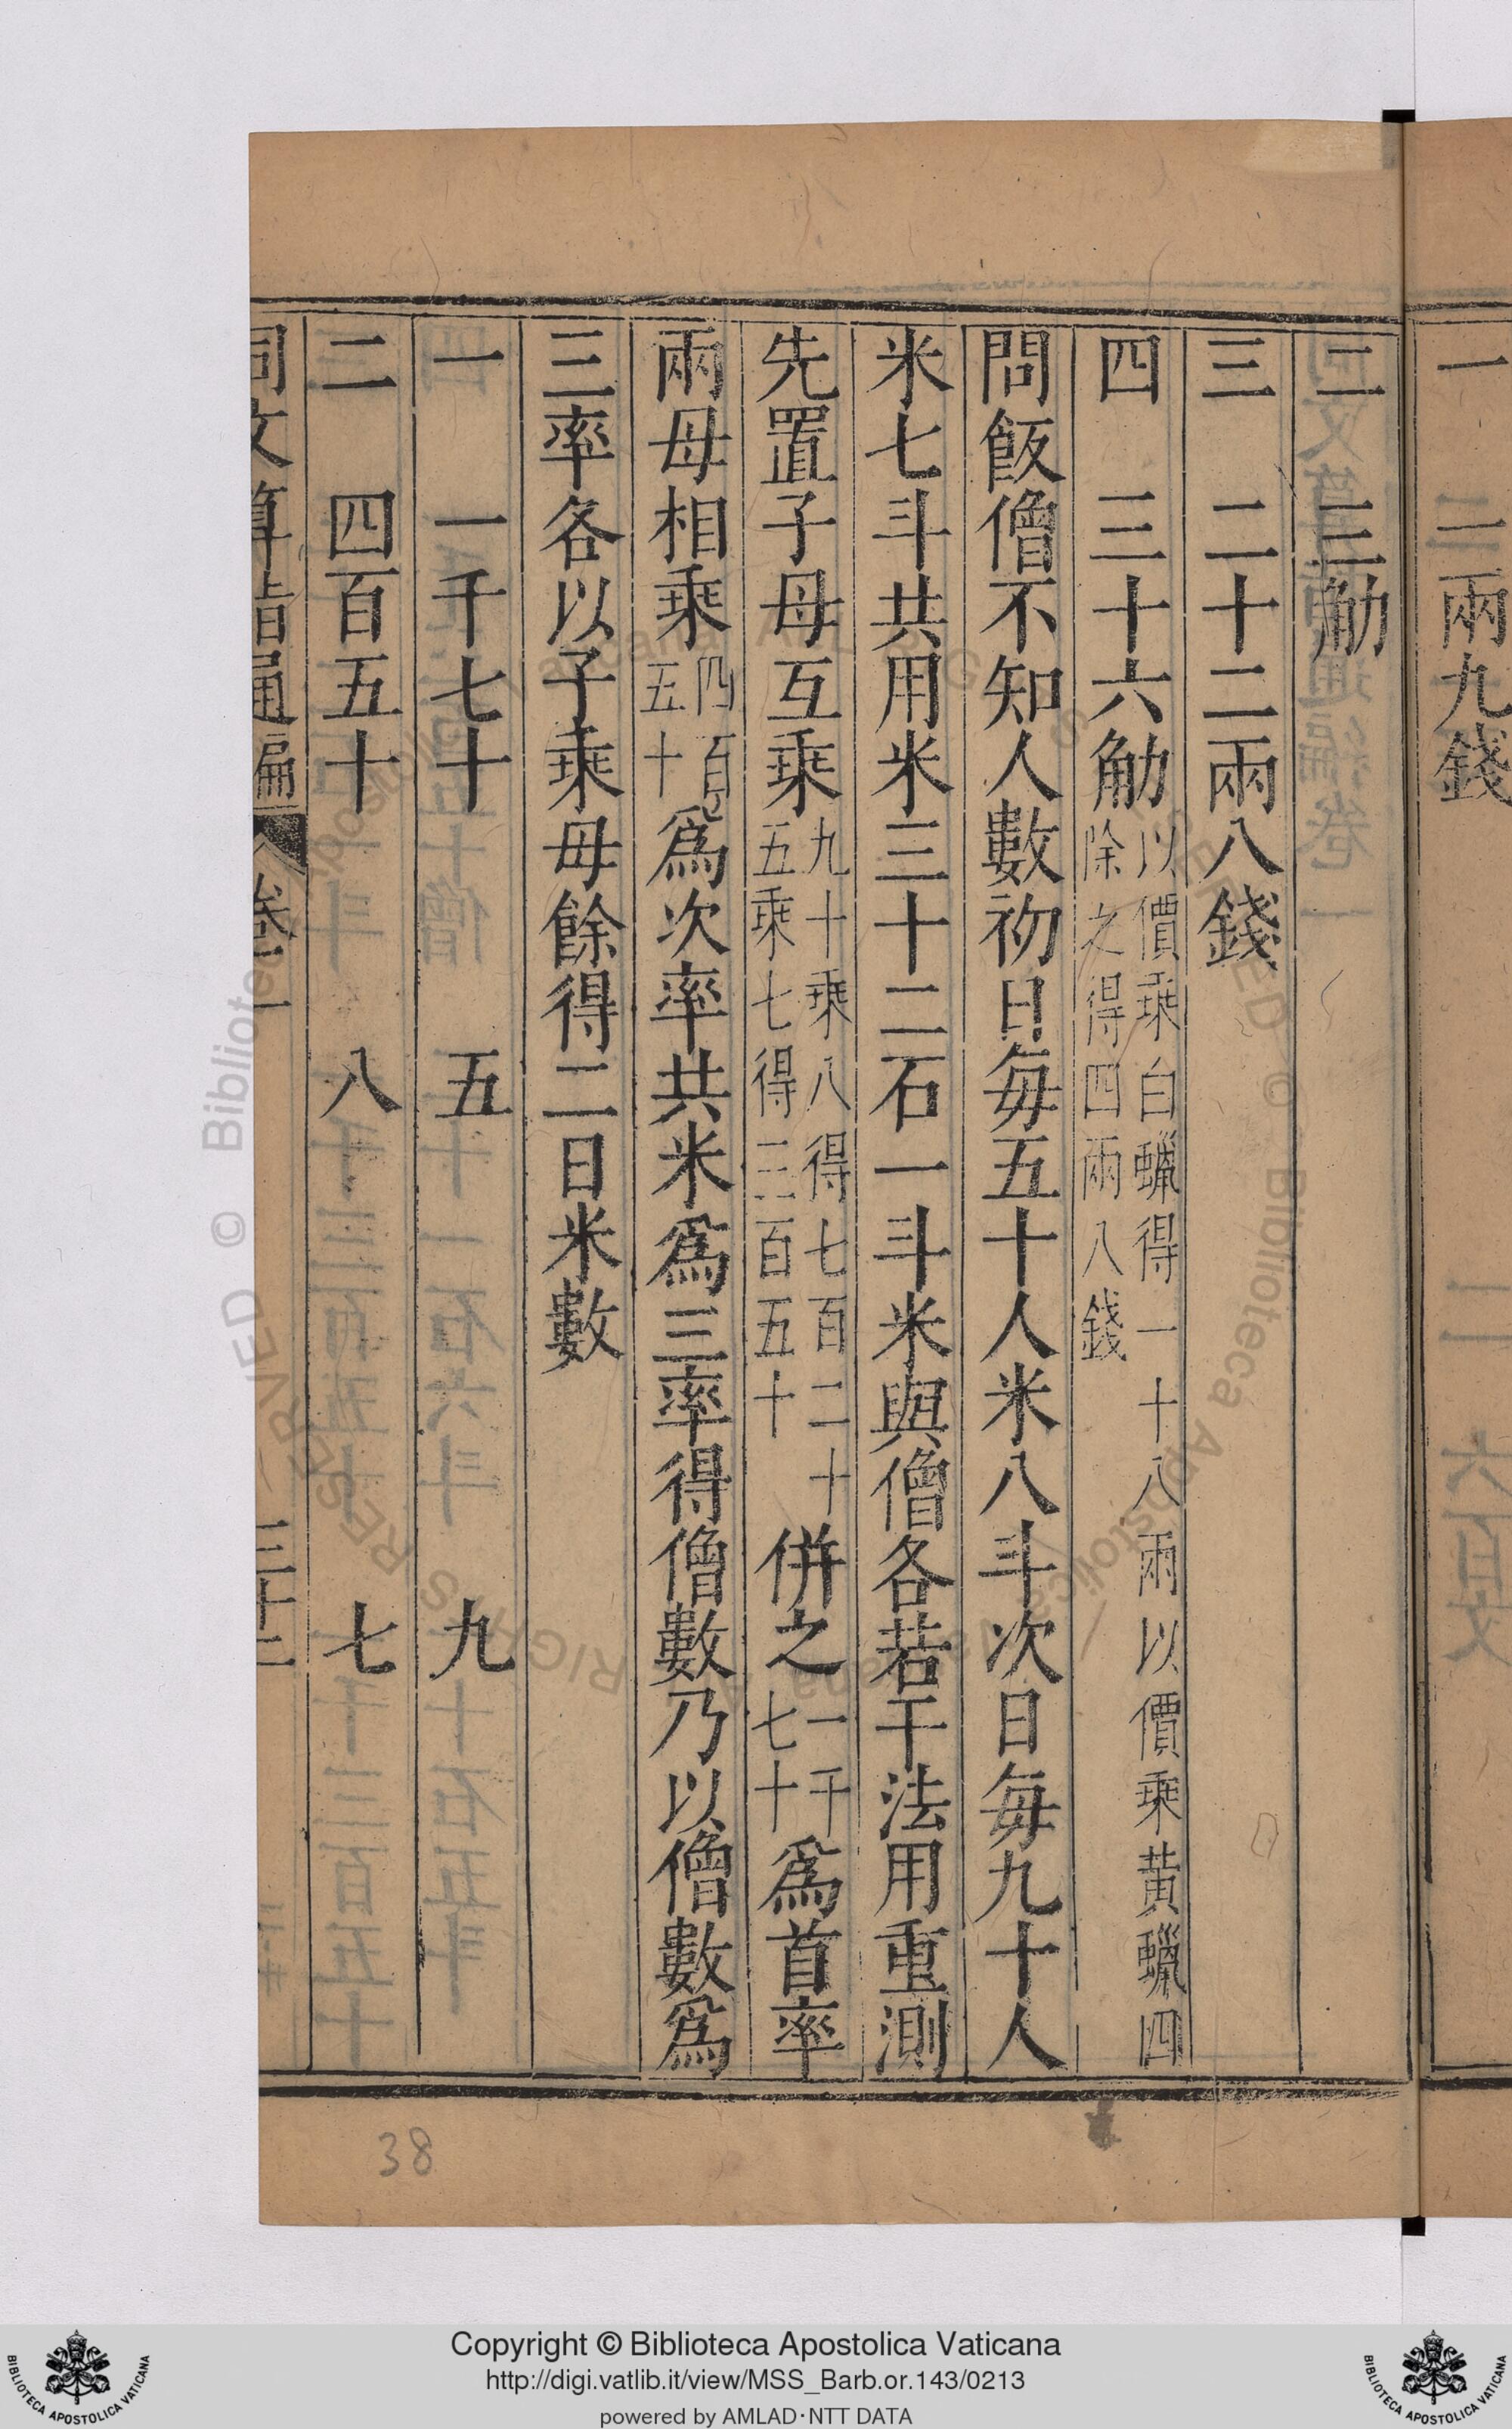 一　三兩九錢
二　三觔
三　二十二兩八錢
四　三十六觔以價乘白蠟得一十八兩以價乘黃蠟四除之得四兩八錢
問飯僧不知人數初日每五十人米八斗次日每九十人
米七斗共用米三十二石一斗米與僧各若干法用重測
先置子母互乘九十乘八得七百二十五乘七得三百五十併之一千七十為首率
兩母相乘四百五十為次率共米為三率得僧數乃以僧數為
三率各以子乘母餘得二日米數
一　一千七十　五　九
二　四百五十　八　七
同文算指通編　卷一　三十二
38
Copyright © Biblioteca Apostolica Vaticana
http://digi.vatlib.it/view/MSS_Barb.or.143/0213
powered by AMLAD·NTT DATA
BIBLIOTECA APOSTOLICA VATICANA
BIBLIOTECA APOSTOLICA VATICANA